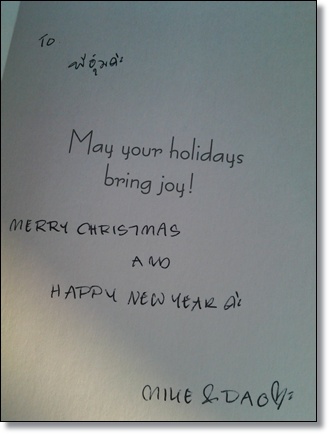 TO
พี่อุ๋มค่ะ
May your holidays
bring joy!
MERRY CHRISTMAS
AND
HAPPY NEW YEAR ค่ะ
MIKE & DAO